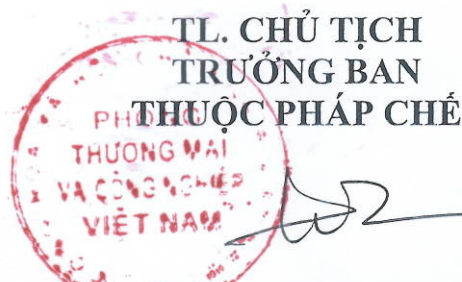 TL. CHỦ TỊCH
TRƯỞNG BAN
THUỘC PHÁP CHẾ
PHÒNG
THƯƠNG MẠI
VÀ CÔNG NGHIỆP
VIỆT NAM